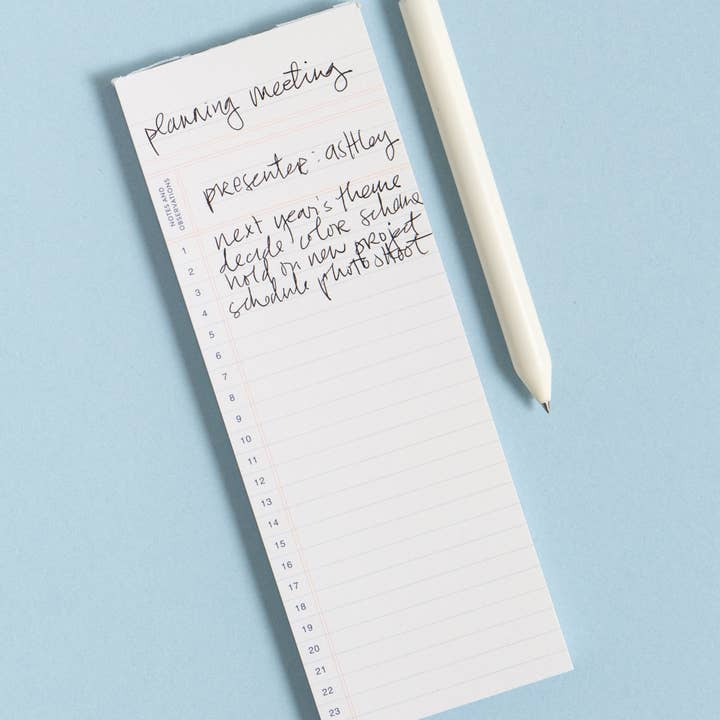 planning meeting
presenter: ashley
NOTES AND
OBSERVATIONS
1 next year's theme
2 decide color scheme
3 hold on new project
4 schedule photoshoot
5
6
7
8
9
10
11
12
13
14
15
16
17
18
19
20
21
22
23